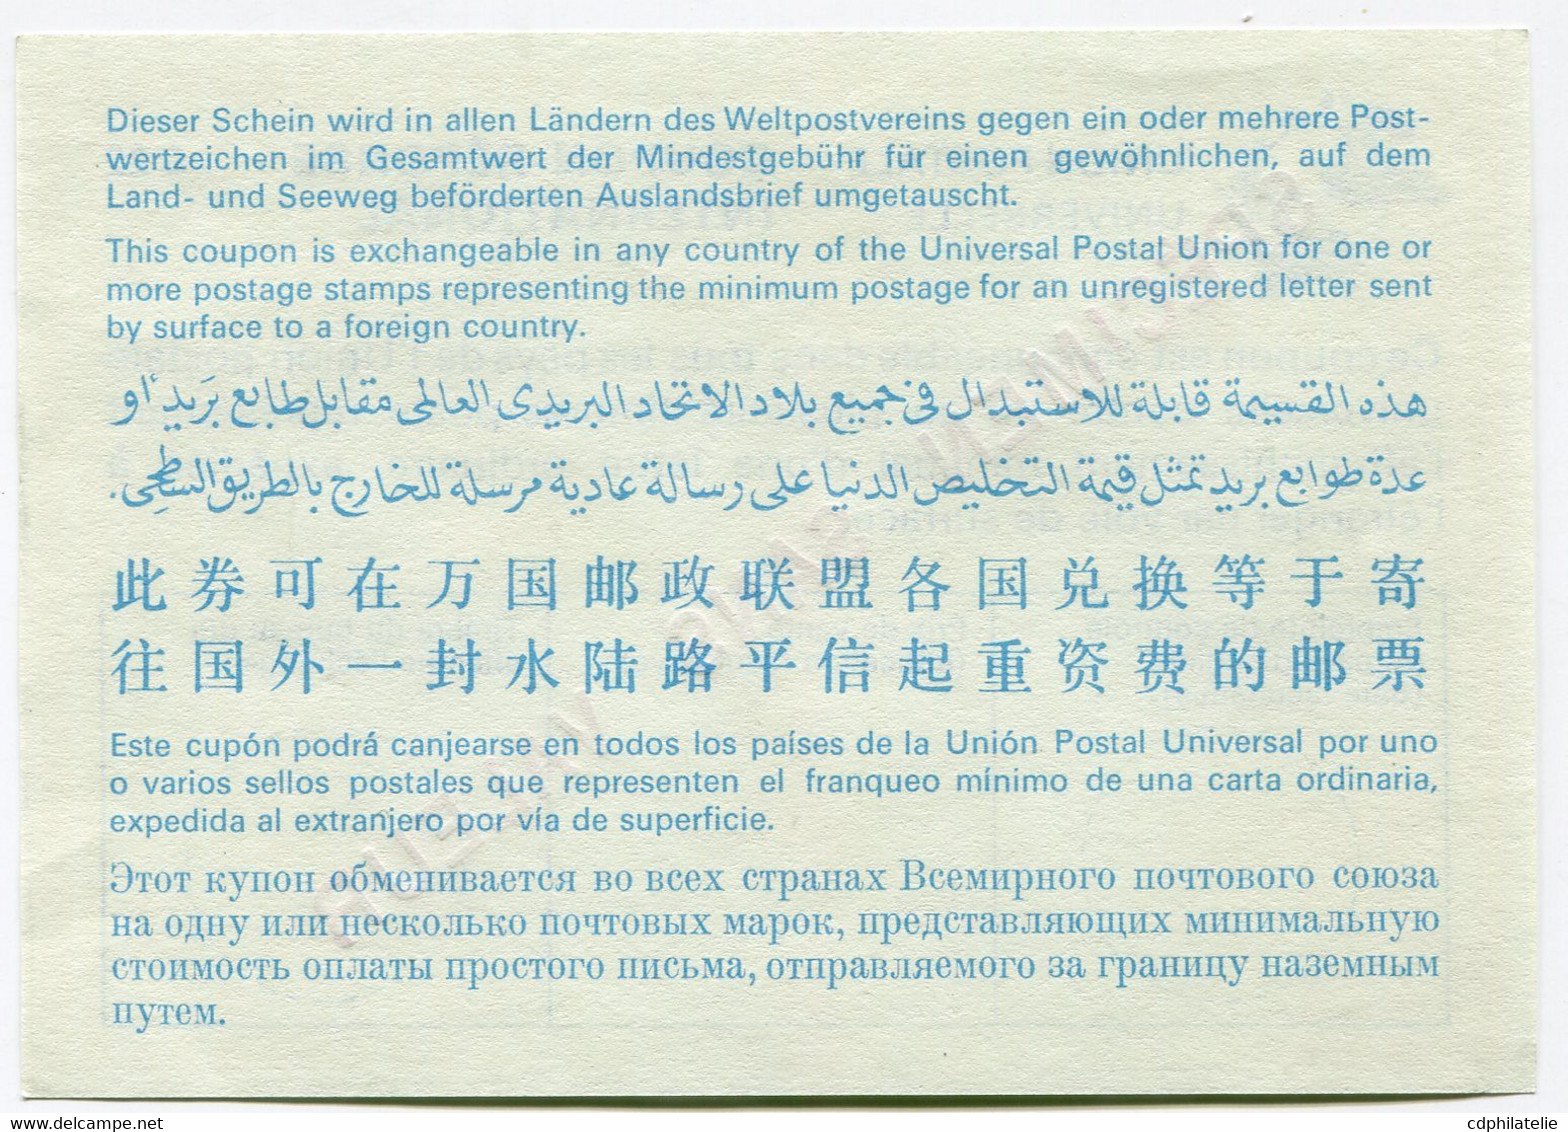 Dieser Schein wird in allen Ländern des Weltpostvereins gegen ein oder mehrere Post-
wertzeichen im Gesamtwert der Mindestgebühr für einen gewöhnlichen, auf dem
Land- und Seeweg beförderten Auslandsbrief umgetauscht.
This coupon is exchangeable in any country of the Universal Postal Union for one or
more postage stamps representing the minimum postage for an unregistered letter sent
by surface to a foreign country.
هذه القسيمة قابلة للاستبدال في جميع بلاد الاتحاد البريدى العالمى مقابل طابع بَريد أو
عدة طوابع بريد تمثل قيمة التخليص الدنيا على رسالة عادية مرسلة للخارج بالطريق السطحِى.
此券可在万国邮政联盟各国兑换等于寄
往国外一封水陆路平信起重资费的邮票
Este cupón podrá canjearse en todos los países de la Unión Postal Universal por uno
o varios sellos postales que representen el franqueo mínimo de una carta ordinaria,
expedida al extranjero por vía de superficie.
Этот купон обменивается во всех странах Всемирного почтового союза
на одну или несколько почтовых марок, представляющих минимальную
стоимость оплаты простого письма, отправляемого за границу наземным
путем.
SPECIMEN
SANS
VALEUR
cdphilatelie